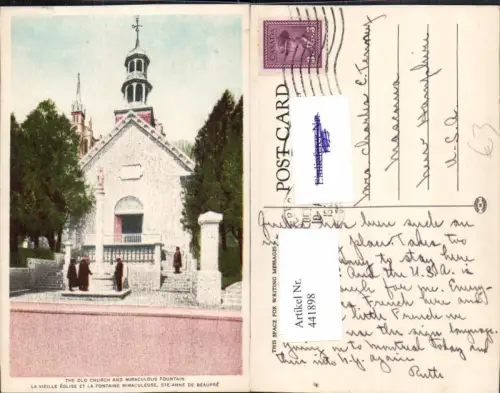 THE OLD CHURCH AND MIRACULOUS FOUNTAIN
LA VIEILLE ÉGLISE ET LA FONTAINE MIRACULEUSE, STE-ANNE DE BEAUPRÉ
CANADA
POST CARD
THIS SPACE FOR WRITING MESSAGES
Mrs Charles C. Tenney
Mascoma
New Hampshire
U.S.A.
63
been such an
place. Takes two
to stay here
and the U.S.A. is
for me. Every-
French here and
little French we
use the sign language.
going on to Montreal today and
then into N.Y. again
Ruth
Artikel Nr.
441898